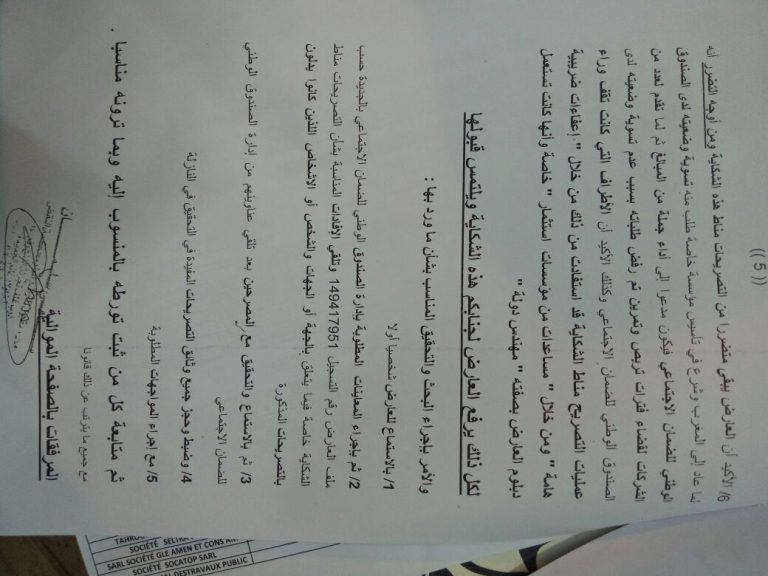 (( 5 ))
6/ الأكيد أن العارض يبقى متضررا من التصريحات مناط هذه الشكاية ومن أوجه التضرر أنه
لما عاد إلى المغرب وشرع في تأسيس مؤسسة خاصة طلب منه تسوية وضعيته لدى الصندوق
الوطني للضمان الاجتماعي فيكون مدعوا إلى أداء جملة من المبالغ ثم لما تقدم لعدد من
الشركات لقضاء فترات تربص وتمرين تم رفض طلباته بسبب عدم تسوية وضعيته لدى
الصندوق الوطني للضمان الاجتماعي وكذلك الأكيد أن الأطراف التي كانت تقف وراء
عمليات التصريح مناط الشكاية قد استفادت من ذلك من خلال " إعفاءات ضريبية
هامة " ومن خلال " مساعدات من مؤسسات استثمار " خاصة وأنها كانت تستعمل
دبلوم العارض بصفته " مهندس دولة "
لكل ذلك يرفع العارض لجنابكم هذه الشكاية ويلتمس قبولها
والأمر بإجراء البحث والتحقيق المناسب بشأن ما ورد بها :
1/ بالاستماع للعارض شخصيا أولا
2/ ثم بإجراء المعاينات المطلوبة بإدارة الصندوق الوطني للضمان الاجتماعي بالجديدة حسب
ملف العارض رقم التسجيل 149417951 وتلقي الإفادات المناسبة بشأن التصريحات مناط
الشكاية خاصة فيما يتعلق بالجهة أو الجهات والشخص أو الاشخاص اللذين كانوا يدلون
بالتصريحات المذكورة
3/ ثم بالاستماع والتحقيق مع المصرحين بعد تلقي عناوينهم من إدارة الصندوق الوطني
للضمان الاجتماعي
4/ وضبط وحجز جميع وثائق التصريحات المفيدة في التحقيق في النازلة
5/ مع إجراء المواجهات المطلوبة
ثم متابعة كل من ثبت تورطه بالمنسوب إليه وبما ترونه مناسبا .
مع جميع ما يترتب عن ذلك قانونا
المرفقات بالصفحة الموالية
SOCIÉTÉ SELTRA
SARL SOCIÉTÉ GLE AMEN ET CONS
SOCIÉTÉ SOCATOP SARL
DESTRAVAUX PUBLIC